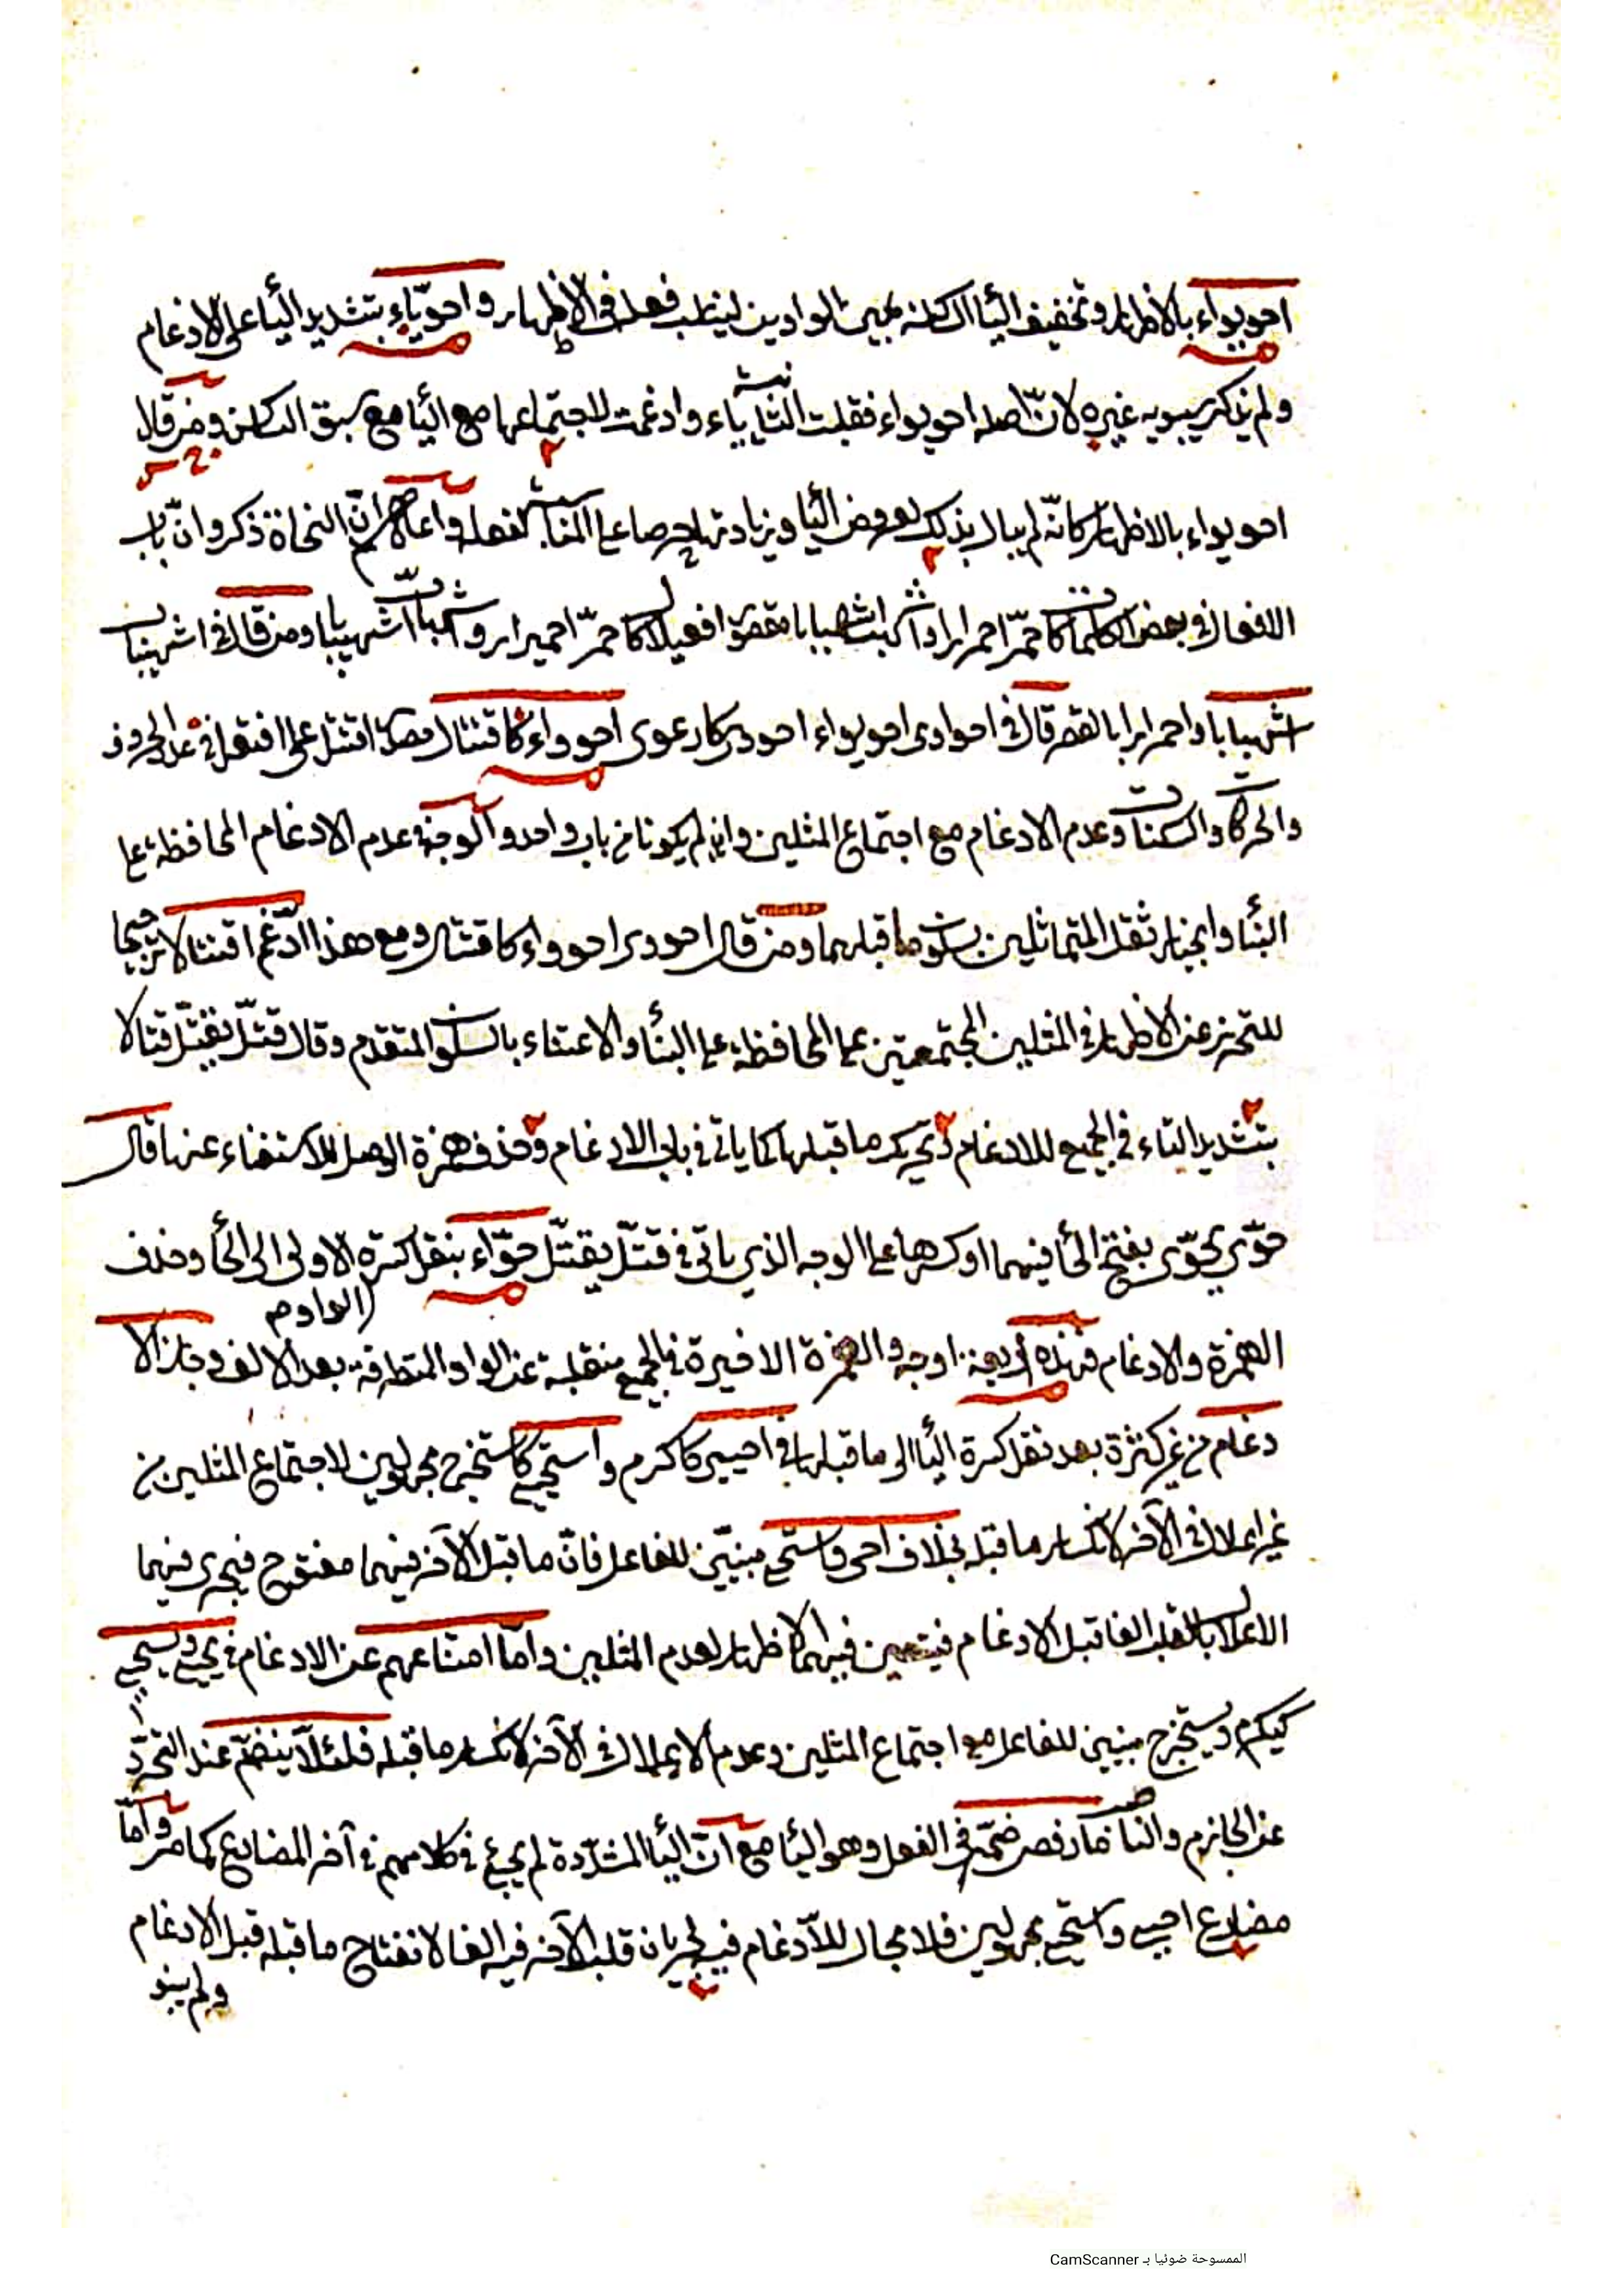 احويواء بالاظهار وتخفيف اليأ الساكنة بين الواوين ليناسب فعله في الاظهار واحويّاء بتشديد اليأ على الادغام
ولم يذكر سيبويه غيره لانّ اصله احويواء فقلبت الثانية ياء وادغمت لاجتماعها مع اليأ مع سبق الساكن ومن قال
احويواء بالاظهار كانّه لم يبال بذلك لعروض اليأ وزيادتها حرصا على المناسبة لفعله واعلم انّ النحاة ذكروا انّ باب
الافعلال في بعض الكلمات كاحمرّ احمرارا واشهبّ اشهبابا مقصور افعيلال كاحمارّ احميرار واشهابّ اشهيبابا ومن قال في اشهيباب
اشهبابا واحمرارا بالقصر قال في احواوى احويواء احووى كارعوى احوواء كاقتتال مصدر اقتتل على افتعل في عدد الحروف
والحركات والسكنات وعدم الادغام مع اجتماع المثلين وان لم يكونا من باب واحد والوجه في عدم الادغام المحافظة على
البنأ وانجبار ثقل المتماثلين بسكون ما قبلهما ومن قال احووى احوواء كاقتتال ومع هذا ادّغم اقتتالا ترجيحا
للتحرز عن الاظهار في المثلين المجتمعين على المحافظة على البنأ والاعتناء بالسكون المتقدم وقال قتّل يقتّل قتّالا
بتشديد التاء في الجميع للادغام وتحريك ما قبلها كما ياتي في باب الادغام وحذف همزة الوصل للاستغناء عنها قال
حوّى يحوّى بفتح الحأ فيهما او كسرها على الوجه الذي ياتي في قتّل يقتّل حوّاء بنقل كسرة الاولى الى الحأ وحذف
الواو م
الهمزة والادغام فهذه اربعة اوجه والهمزة الاخيرة في الجميع منقلبة عن الواو المتطرفة بعد الالف وجاز الا
دغام من غير كثرة بعد نقل كسرة اليأ الى ما قبلها في احيي كاكرم واستحيي كاستخرج مجهولين لاجتماع المثلين من
غير اعلال في الآخر لانكسار ما قبله بخلاف احيى واستحيى مبنيّين للفاعل فانّ ما قبل الآخر فيهما مفتوح فيجرى فيهما
الاعلال بالقلب الفا قبل الادغام فيتعين فيهما الاظهار لعدم المثلين وامّا امتناعهم عن الادغام في يحيي ويستحيي
كيكرم ويستخرج مبنيين للفاعل مع اجتماع المثلين وعدم الاعلال في الآخر لانكسار ما قبله فلئلّا ينضمّ عند التجرّد
عن الجازم والناصب ما رفض ضمّه في الفعل وهو اليأ مع انّ اليأ المشدّدة لم يجئ في كلامهم في آخر المضارع كما مر وامّا
مضارع احيي واستحيي مجهولين فلا مجال للادغام فيه لجريان قلب الآخر فيه الفا لانفتاح ما قبله قبل الادغام
ولم يبنو
الممسوحة ضوئيا بـ CamScanner